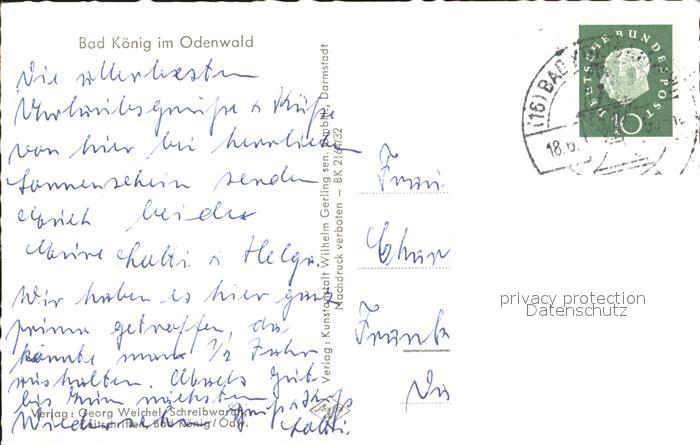 Bad König im Odenwald
Die allerbesten
Urlaubsgrüße & Küße
von hier bei herrlichem
Sonnenschein senden
beide
Lotti & Helga.
Wir haben es hier ganz
prima getroffen, da
könnte man 1/2 Jahr
aushalten.
bis zum nächsten
Wiedersehen
Verlag: Georg Weichel, Schreibwaren,
Zeitschriften, Bad König/Odw.
Verlag: Kunstanstalt Wilhelm Gerling sen. GmbH., Darmstadt
Nachdruck verboten - BK 2164/32
DEUTSCHE BUNDESPOST
10
(16) BAD
18.6.
Frau
Frank
privacy protection
Datenschutz